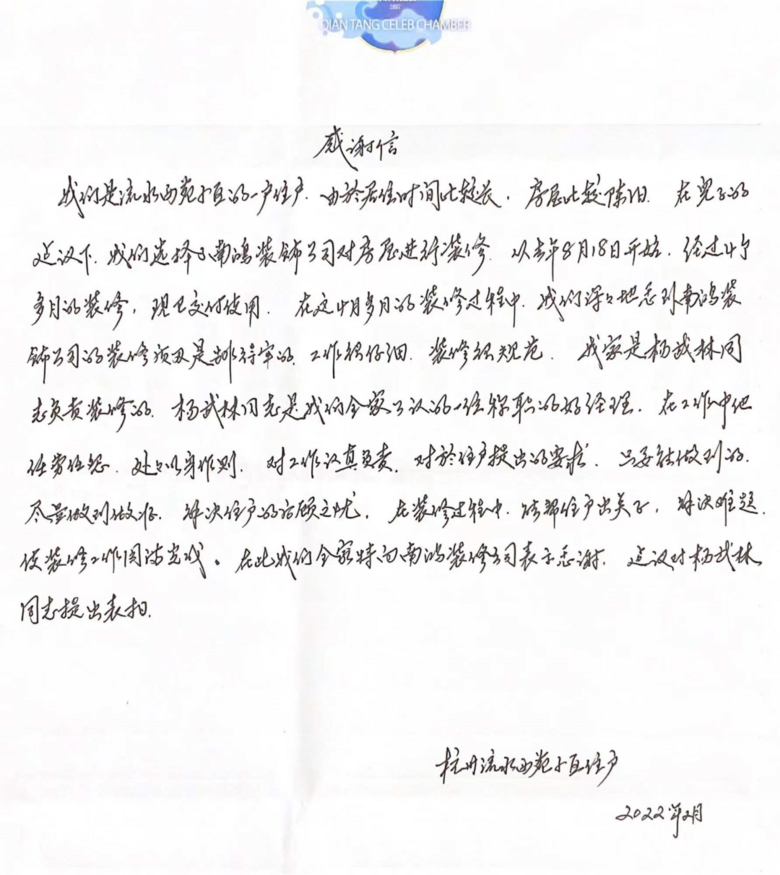 QIAN TANG CELEB CHAMBER
感谢信
我们是流水西苑小区的一户住户.由於居住时间比较长,房屋比较陈旧.在儿子的
建议下.我们选择了南鸿装饰公司对房屋进行装修.从去年8月18日开始.经过4个
多月的装修,现已交付使用.在这4个月多月的装修过程中.我们深深地感到南鸿装
饰公司的装修质量是靠得牢的.工作很仔细.装修很规范.我家是杨武林同
志负责装修的.杨武林同志是我们全家公认的一位称职的好经理.在工作中他
任劳任怨.处处以身作则.对工作认真负责.对於住户提出的要求.只要能做到的.
尽量做到做好.解决住户的后顾之忧.在装修过程中.能帮住户出点子,解决难题.
使装修工作圆满完成。在此我们全家特向南鸿装修公司表示感谢.建议对杨武林
同志提出表扬.
杭州流水西苑小区住户
2022年2月